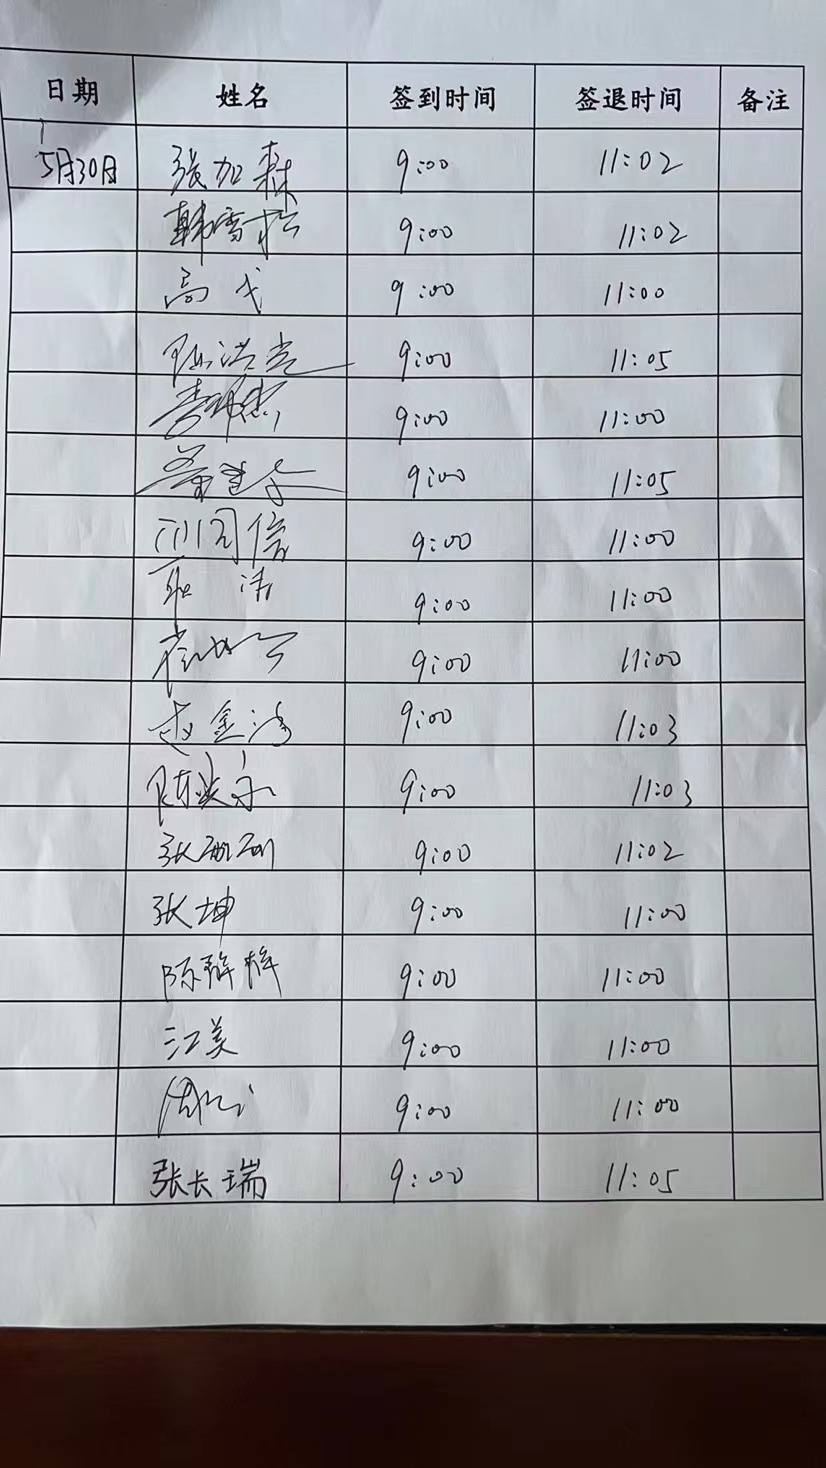 日期 姓名 签到时间 签退时间 备注
5月30日 张加森 9:00 11:02
韩雪松 9:00 11:02
高戈 9:00 11:00
9:00 11:05
9:00 11:00
9:00 11:05
9:00 11:00
9:00 11:00
9:00 11:00
赵金涛 9:00 11:03
9:00 11:03
张 9:00 11:02
张坤 9:00 11:00
陈 9:00 11:00
江美 9:00 11:00
9:00 11:00
张长瑞 9:00 11:05